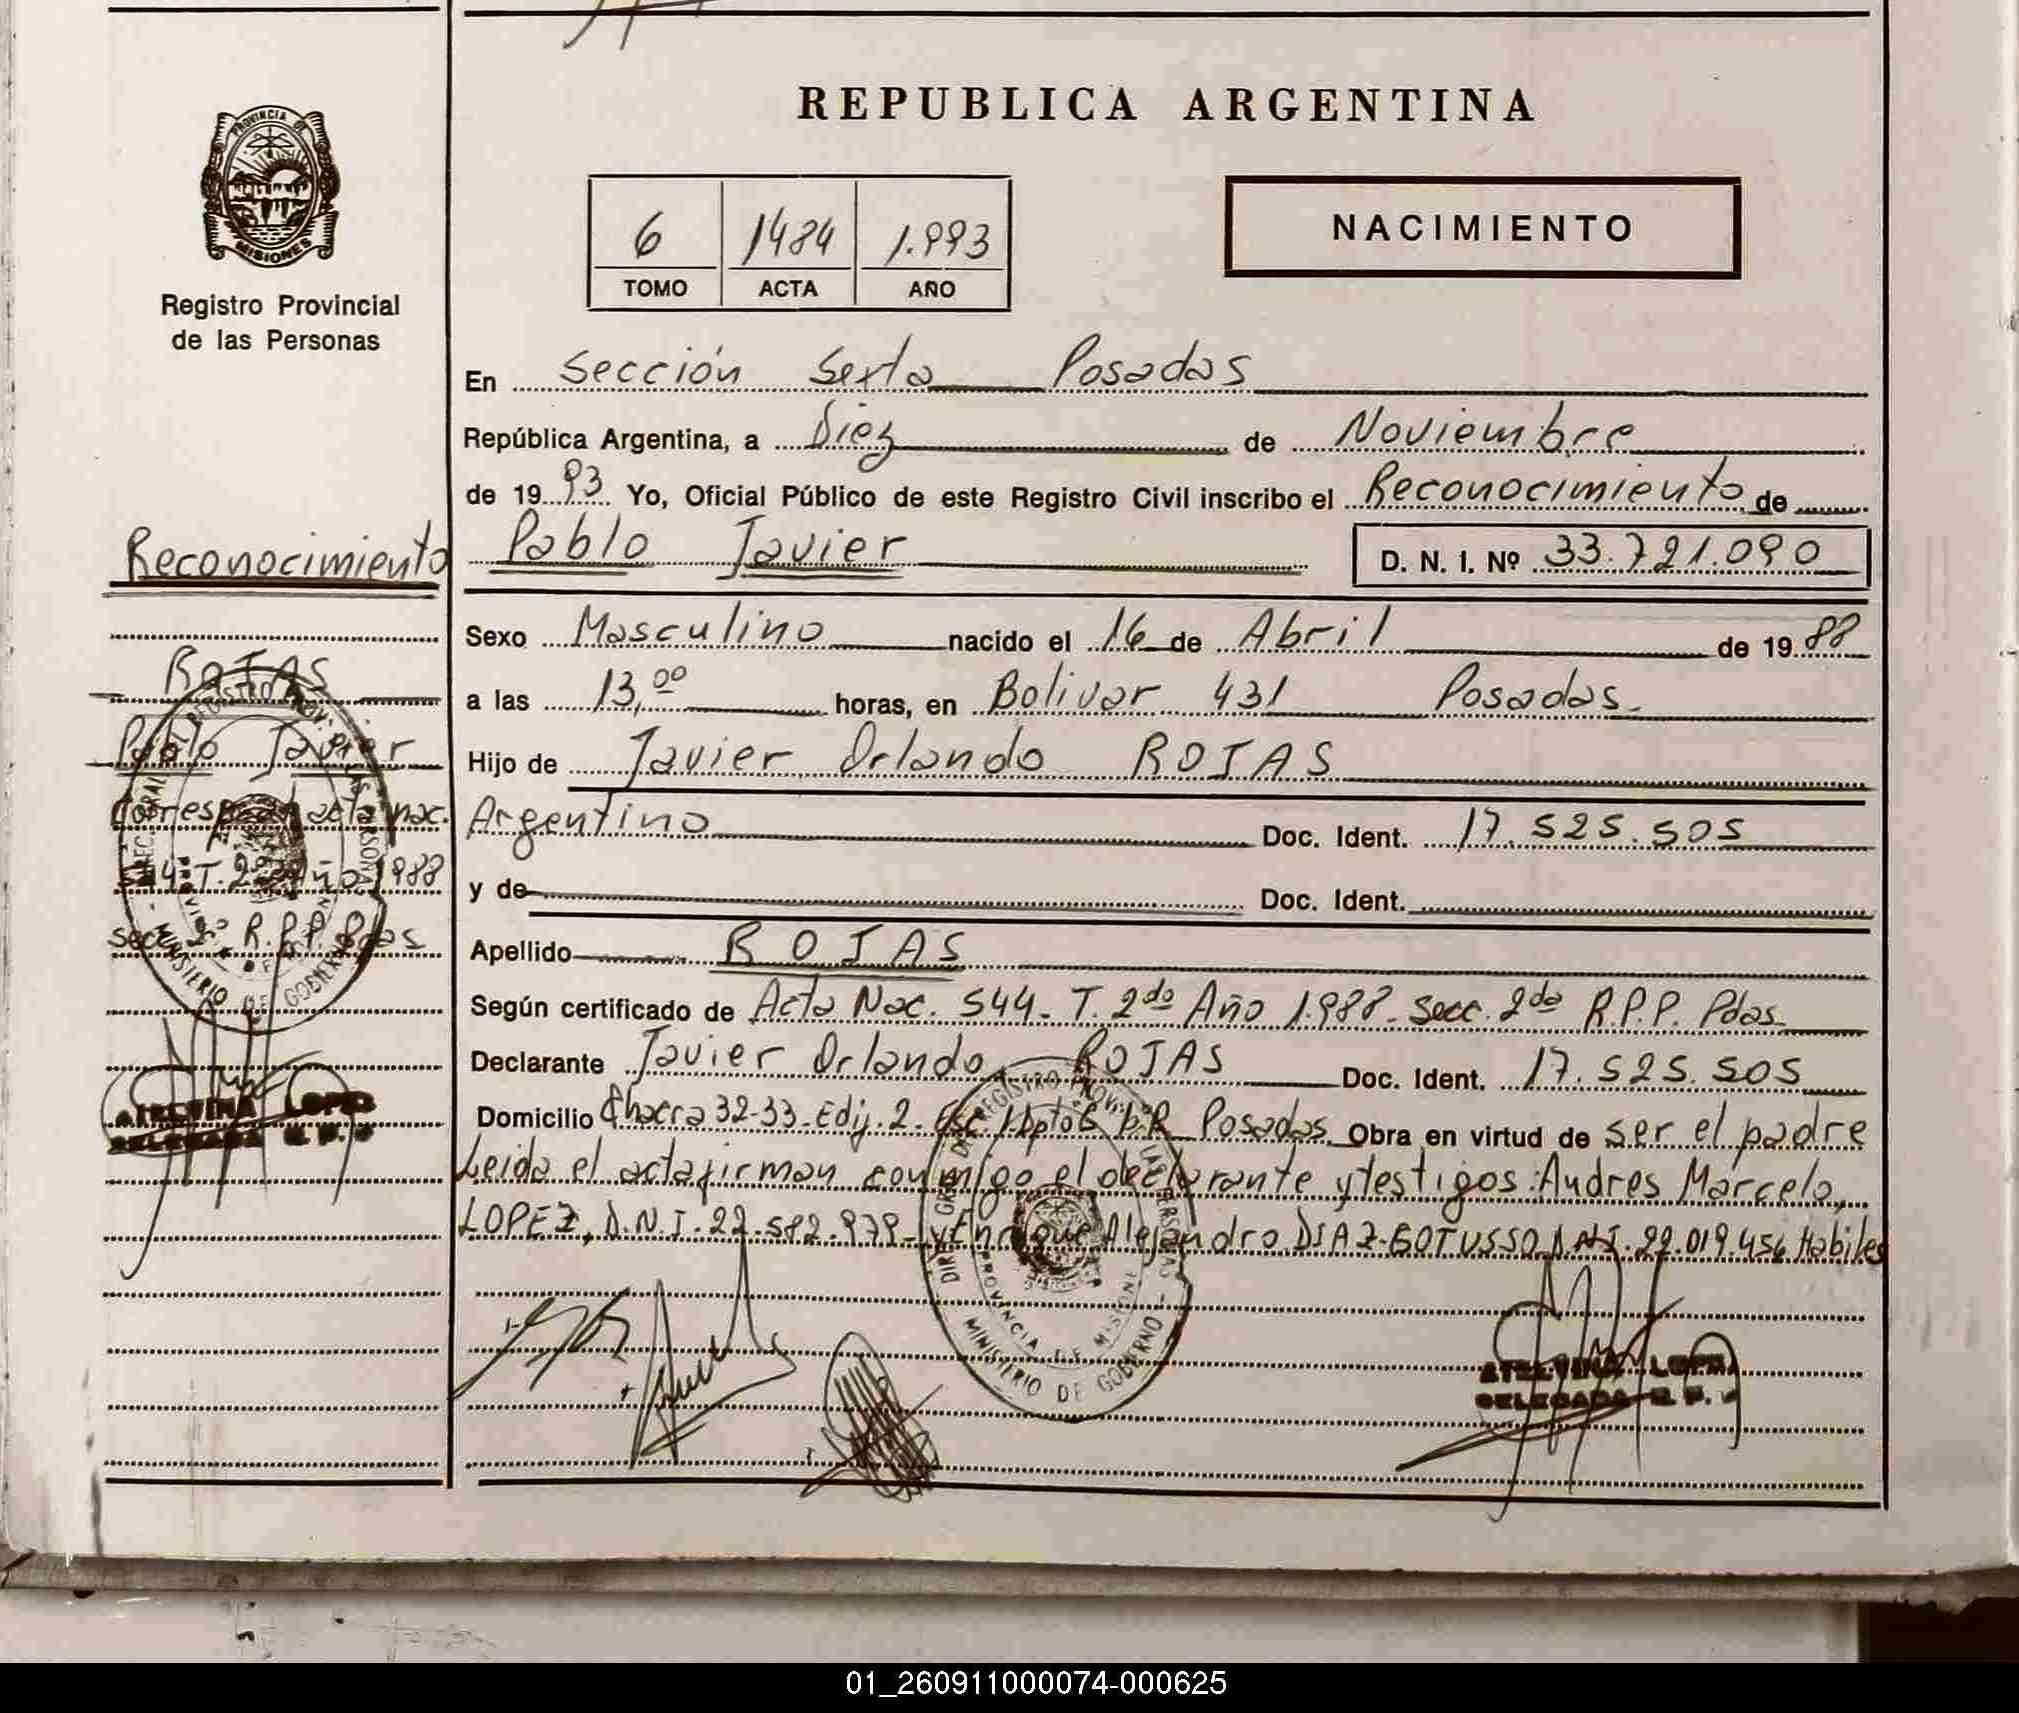 REPUBLICA ARGENTINA
PROVINCIA DE
MISIONES
Registro Provincial
de las Personas
6 1484 1.993
TOMO ACTA AÑO
NACIMIENTO
En Sección Sexta Posadas
República Argentina, a Diez de Noviembre
de 1993 Yo, Oficial Público de este Registro Civil inscribo el Reconocimiento de
Pablo Javier D. N. I. Nº 33.721.090
Sexo Masculino nacido el 16 de Abril de 1988
a las 13,00 horas, en Bolivar 431 Posadas
Hijo de Javier Orlando ROJAS
Argentino Doc. Ident. 17.525.505
y de Doc. Ident.
Apellido ROJAS
Según certificado de Acta Nac. 544- T. 2do Año 1.988- Secc. 2da R.P.P. Pdas.
Declarante Javier Orlando ROJAS Doc. Ident. 17.525.505
Domicilio Chacra 32-33-Edif. 2- Esc. Posadas. Obra en virtud de ser el padre
Leida el acta firman conmigo el declarante y testigos: Andres Marcelo
LOPEZ, D.N.I. 22.582.979- y Enrique Alejandro DIAZ-BOTUSSO D.N.I. 22.019.456 Habiles
Reconocimiento
ROJAS
Pablo Javier
Corresp. acta nac.
544 T. 2do Año 1988
secc. 2º R.P.P. Pdas
ETELVINA LOPEZ
DELEGADA
DIREC. GRAL. DEL REGISTRO PROV. DE LAS PERSONAS
PROVINCIA DE MISIONES
MINISTERIO DE GOBIERNO
ETELVINA LOPEZ
DELEGADA
01_260911000074-000625